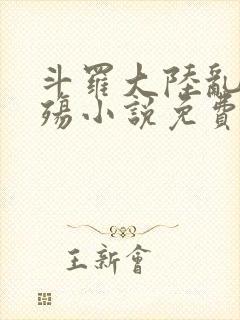 斗羅大陸亂
殤小說免費
王新會